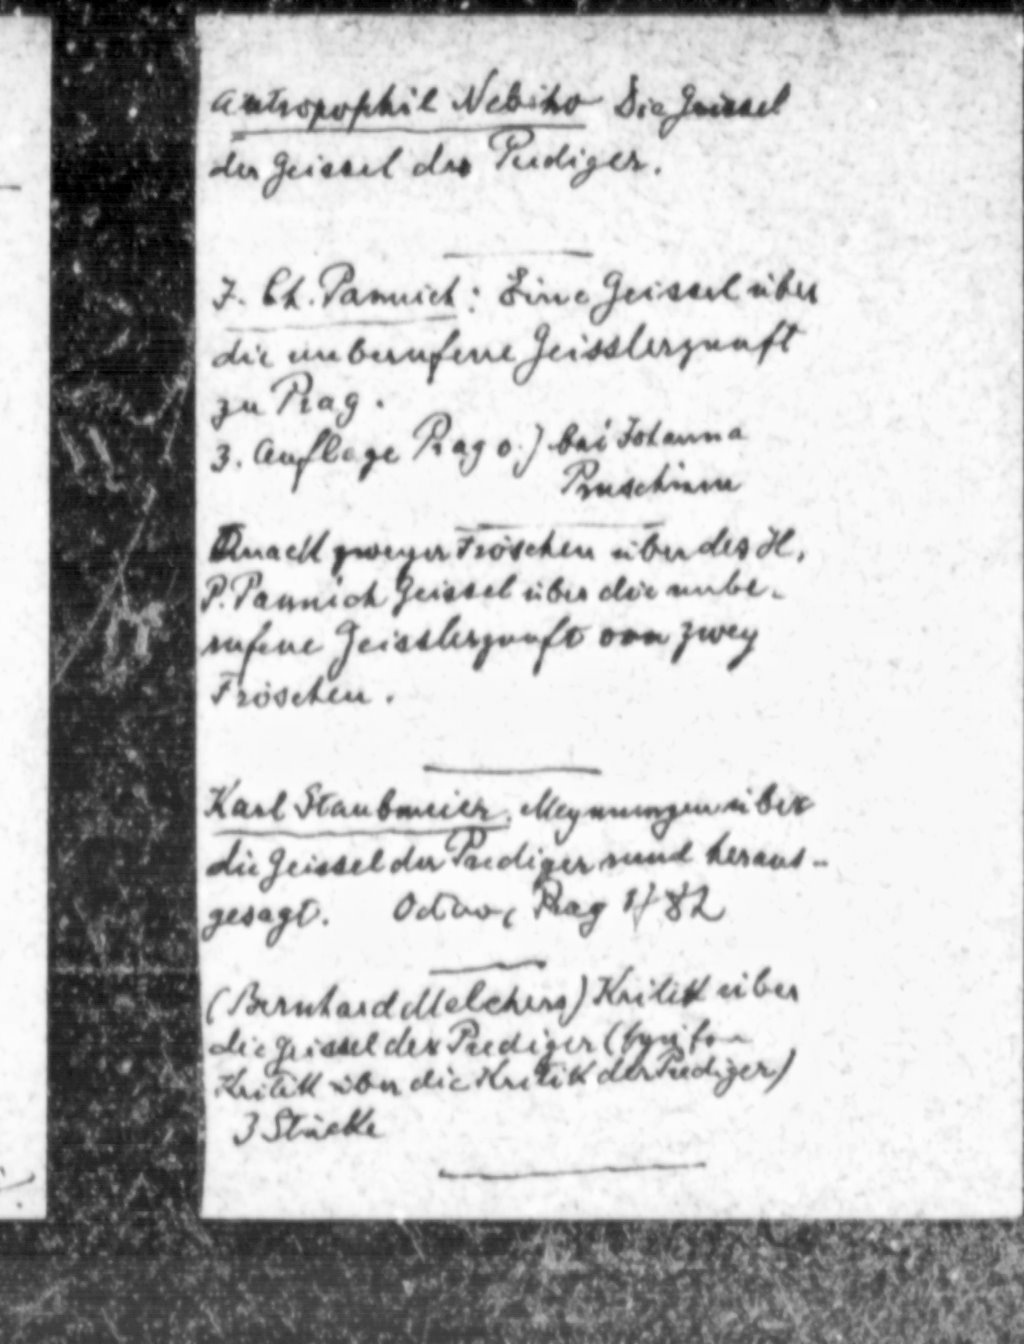 Antropophil Nebiho Die Geissel
der Geissel der Prediger.
J. Ch. Pannich: Eine Geissel über
die unberufene Geisslerzunft
zu Prag.
3. Auflage Prag o.J bei Johanna
Pruschinn
Quackk zweyer Fröschen über des H.
P. Pannich Geissel über die unbe-
rufene Geisslerzunft von zwey
Fröschen.
Karl Staubmeier, Meynungen über
die Geissel der Prediger rund heraus-
gesagt. Octavo, Prag 1782
(Bernhard Melchers) Kritikk über
die Geissel der Prediger
Kritikk über die Kritik der Prediger)
3 Stücke